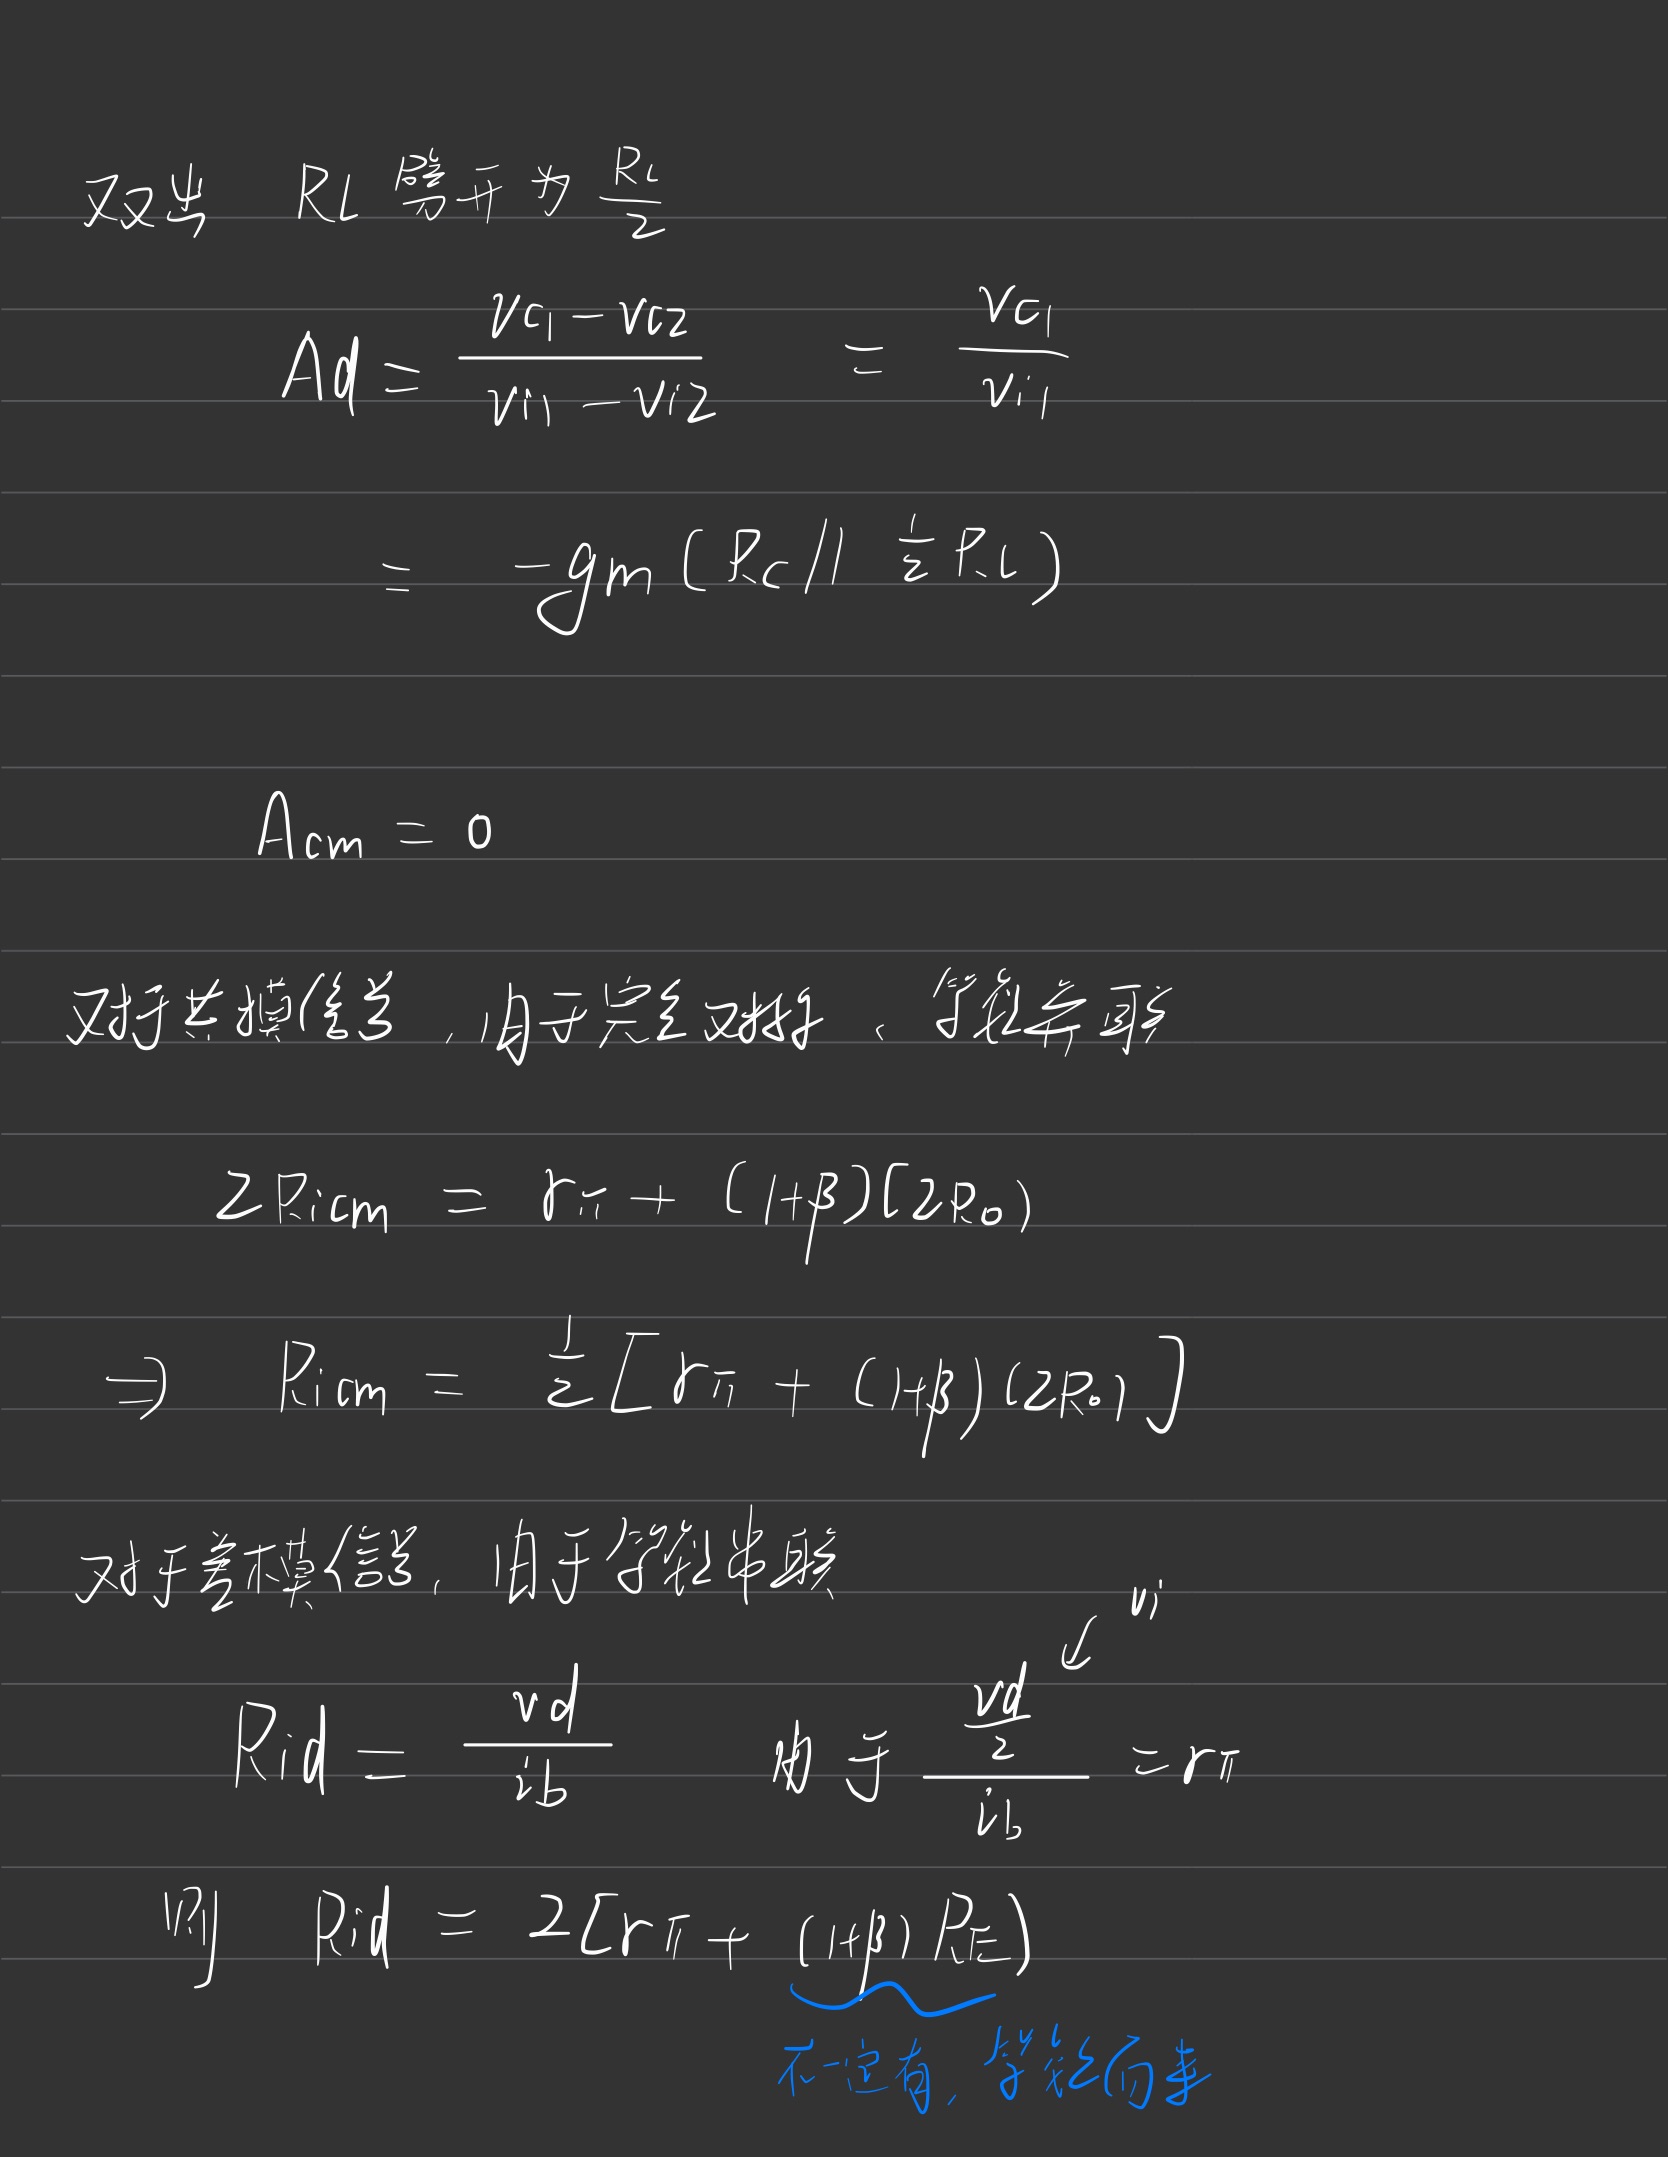 双出 RL 劈开为 RL/2
Ad = (vc1 - vc2)/(vi1 - vi2) = vc1/vi1
= -gm (Rc // 1/2 RL)
Acm = 0
对于共模信号,由于完全对称、等效并联
2Ricm = rπ + (1+β)(2Ro)
⇒ Ricm = 1/2 [rπ + (1+β)(2Ro)]
对于差模信号,由于等效串联
vi
Rid = vd/ib 由于 (vd/2)/ib = rπ
则 Rid = 2[rπ + (1+β)RE)
不一定有,等效而来